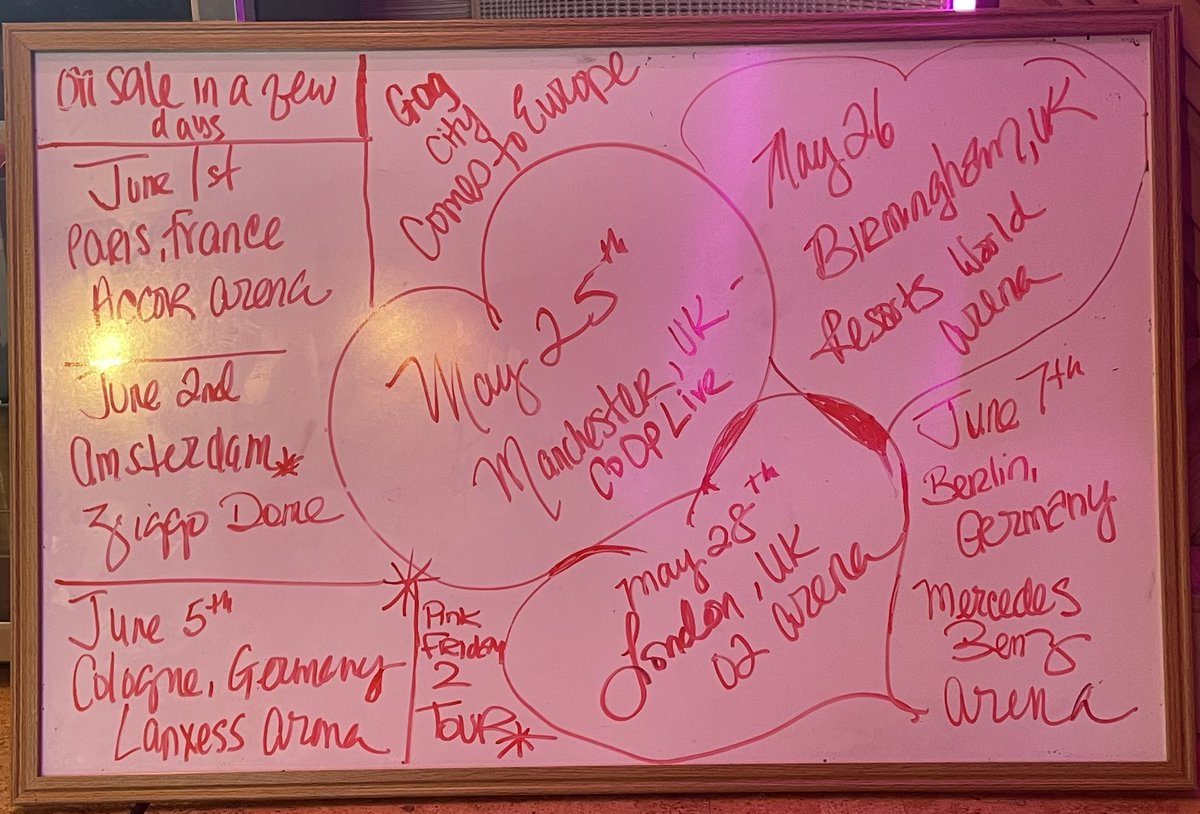 On sale in a few
days
June 1st
Paris, France
Accor arena
June 2nd
Amsterdam*
Ziggo Dome
June 5th
Cologne, Germany
Lanxess arena
Gag
City
Comes to Europe
May 25th
Manchester, UK -
CO OP Live
May 26
Birmingham, UK
Resorts World
arena
May 28th
London, UK
O2 arena
Pink
Friday
2
TOUR*
June 7th
Berlin,
Germany
Mercedes
Benz
arena